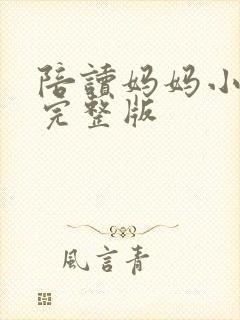 陪讀妈妈小
完整版
風言青